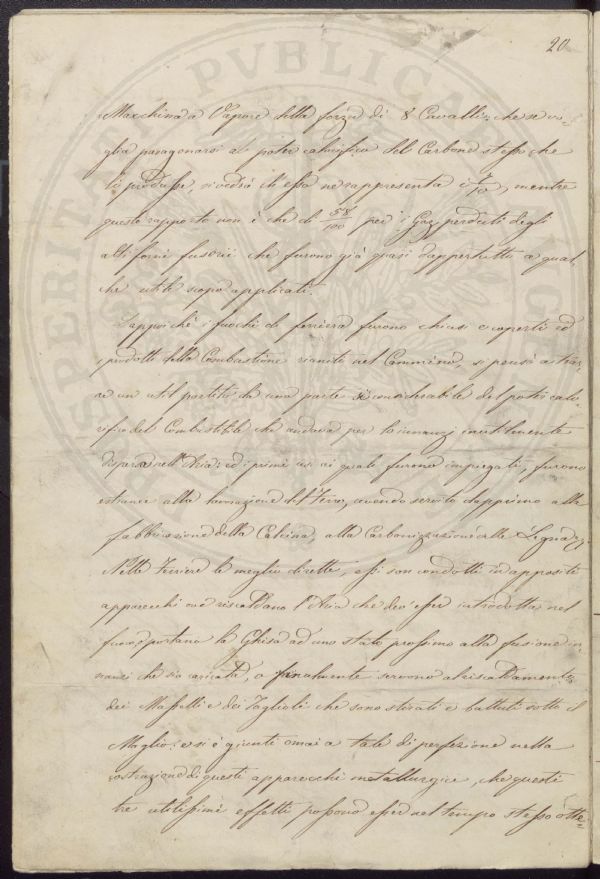 20
Macchina a Vapore della forza di 8 Cavalli: che se vo-
glia paragonarsi al poter calorifico del Carbone stesso che
lo produsse, si vedrà ch'essa ne rappresenta i mentre
questo rapporto non è che di 58/100 per i Gaz perduti degli
alti forni fusorii che furono già quasi dappertutto a qual-
che utile scopo applicati.
Dappoichè i fuochi di ferriera furono chiusi e coperti ed
i prodotti della Combustione riuniti nel Cammino, si pensò a trar-
re un util partito da una parte sì considerabile del poter calo-
rifico del Combustibile che andava per lo innanzi inutilmente
disperso nell'Aria: ed i primi usi ai quali furono impiegati, furono
estranei alla lavorazione del Ferro, avendo servito dapprima alla
fabbricazione della Calcina, alla Carbonizzazione delle Legna &c.
Nelle Ferriere le meglio dirette, essi son condotti in appositi
apparecchi ove riscaldano l'Aria che dev'esser introdotta nel
fuoco, portano la Ghisa ad uno stato prossimo alla fusione in-
nanzi che sia caricata, o finalmente servono al riscaldamento
dei Masselli e dei Taglioli che sono stirati e battuti sotto il
Maglio: e si è giunti omai a tale di perfezione nella
costruzione di questi apparecchi metallurgici, che questi
tre utilissimi effetti possono esser nel tempo stesso otte-
PVBLICAE